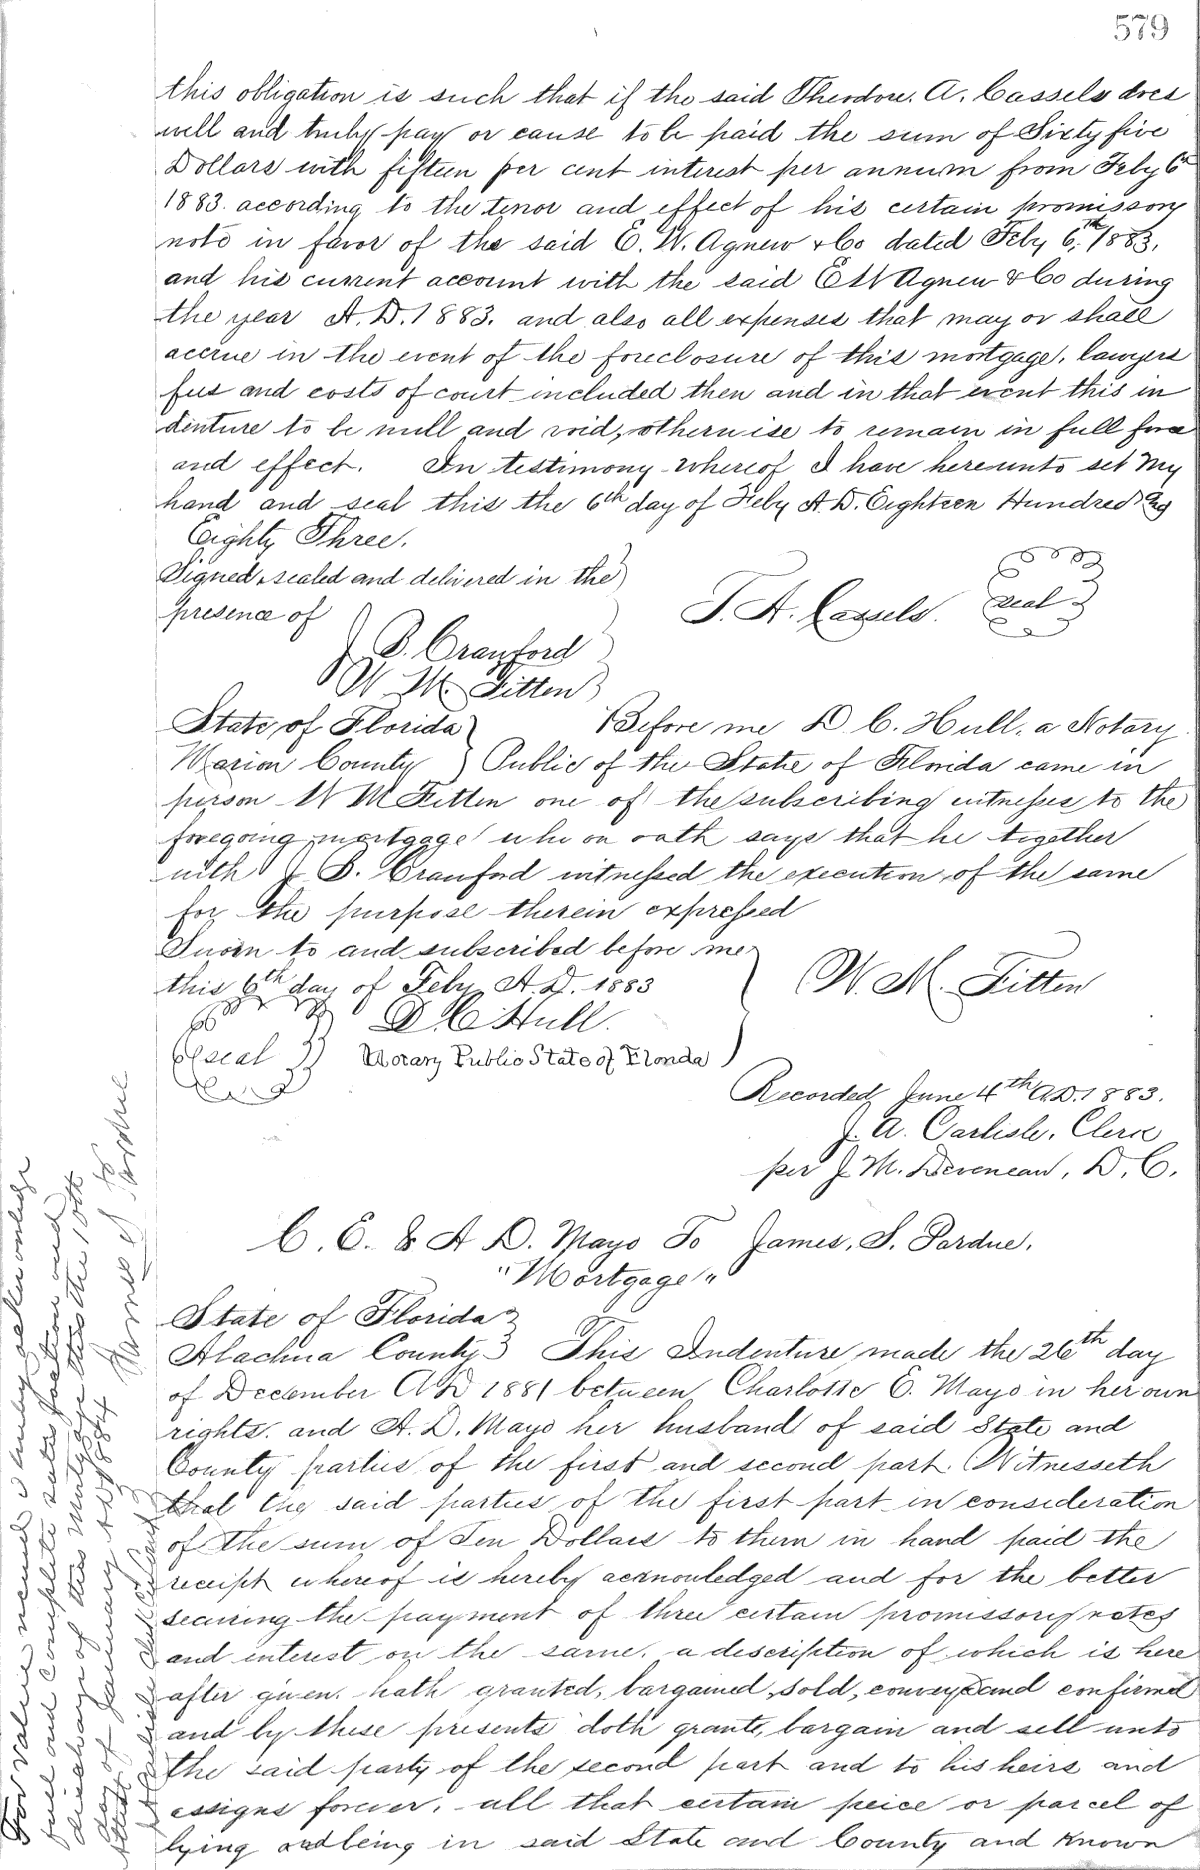 579
this obligation is such that if the said Theodore. A. Cassels does
well and truly pay or cause to be paid the sum of Sixty five
Dollars with fifteen per cent interest per annum from Feby 6th
1883. according to the tenor and effect of his certain promissory
note in favor of the said E. W. Agnew & Co dated Feby 6th, 1883,
and his current account with the said E W Agnew & Co during
the year A. D. 1883. and also all expenses that may or shall
accrue in the event of the foreclosure of this mortgage, lawyers
fees and costs of court included then and in that event this in
denture to be null and void, otherwise to remain in full force
and effect. In testimony whereof I have hereunto set my
hand and seal this the 6th day of Feby A. D. Eighteen Hundred and
Eighty Three.
Signed, sealed and delivered in the
presence of
T. A. Cassels. seal
J B. Cranford
W M. Fitten
State of Florida
Before me D. C. Hull, a Notary
Marion County Public of the State of Florida came in
person W M Fitten one of the subscribing witnesses to the
foregoing mortgage who on oath says that he together
with J B. Cranford witnessed the execution of the same
for the purpose therein expressed
Sworn to and subscribed before me
this 6th day of Feby A. D. 1883
W. M. Fitten
D C Hull.
seal Notary Public State of Florida
Recorded June 4th A.D. 1883.
J. A. Carlisle, Clerk
per J. M. Deveneau, D. C.
C. E. & A D. Mayo To James. S. Pardue.
"Mortgage"
State of Florida
Alachua County This Indenture made the 26th day
of December A D 1881 between Charlotte E. Mayo in her own
rights. and A. D. Mayo her husband of said State and
County parties of the first and second part. Witnesseth
that the said parties of the first part in consideration
of the sum of Ten Dollars to them in hand paid the
receipt whereof is hereby acknowledged and for the better
securing the payment of three certain promissory notes
and interest on the same, a description of which is here
after given. hath granted, bargained, sold, conveyed and confirmed
and by these presents doth grant, bargain and sell unto
the said party of the second part and to his heirs and
assigns forever, all that certain peice or parcel of
lying and being in said State and County and known
For value received I hereby acknowledge
full and complete satisfaction and
discharge of this Mortgage this the 10th
day of January A D 1884 James S Pardue
Attest
J A Carlisle Clerk